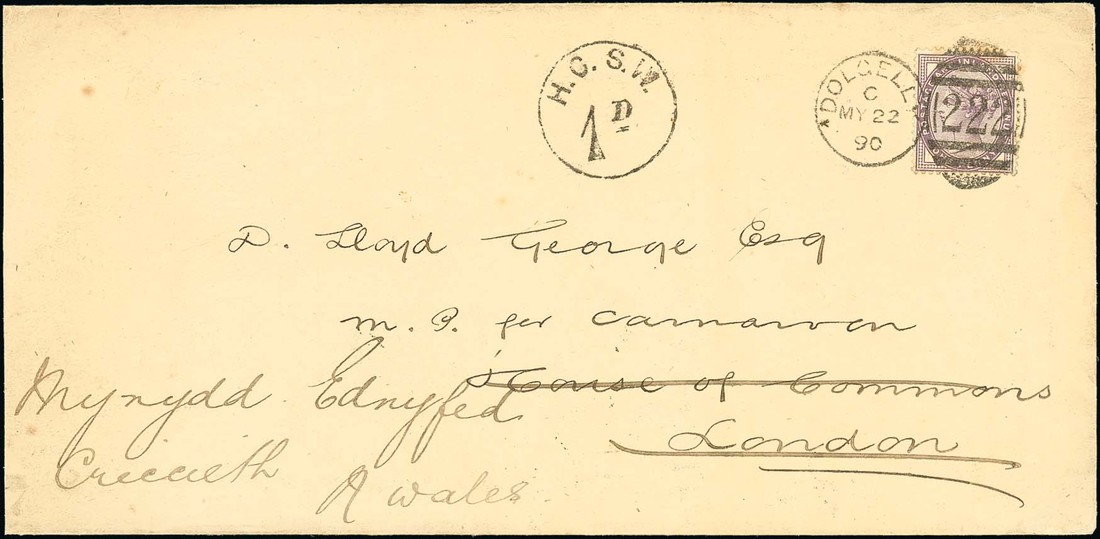 H.C.S.W.
1D
DOLGELLY
C
MY 22
90
222
D. Lloyd George Esq
M. P. for Carnarvon
House of Commons
London
Mynydd Ednyfed
Criccieth
N Wales.